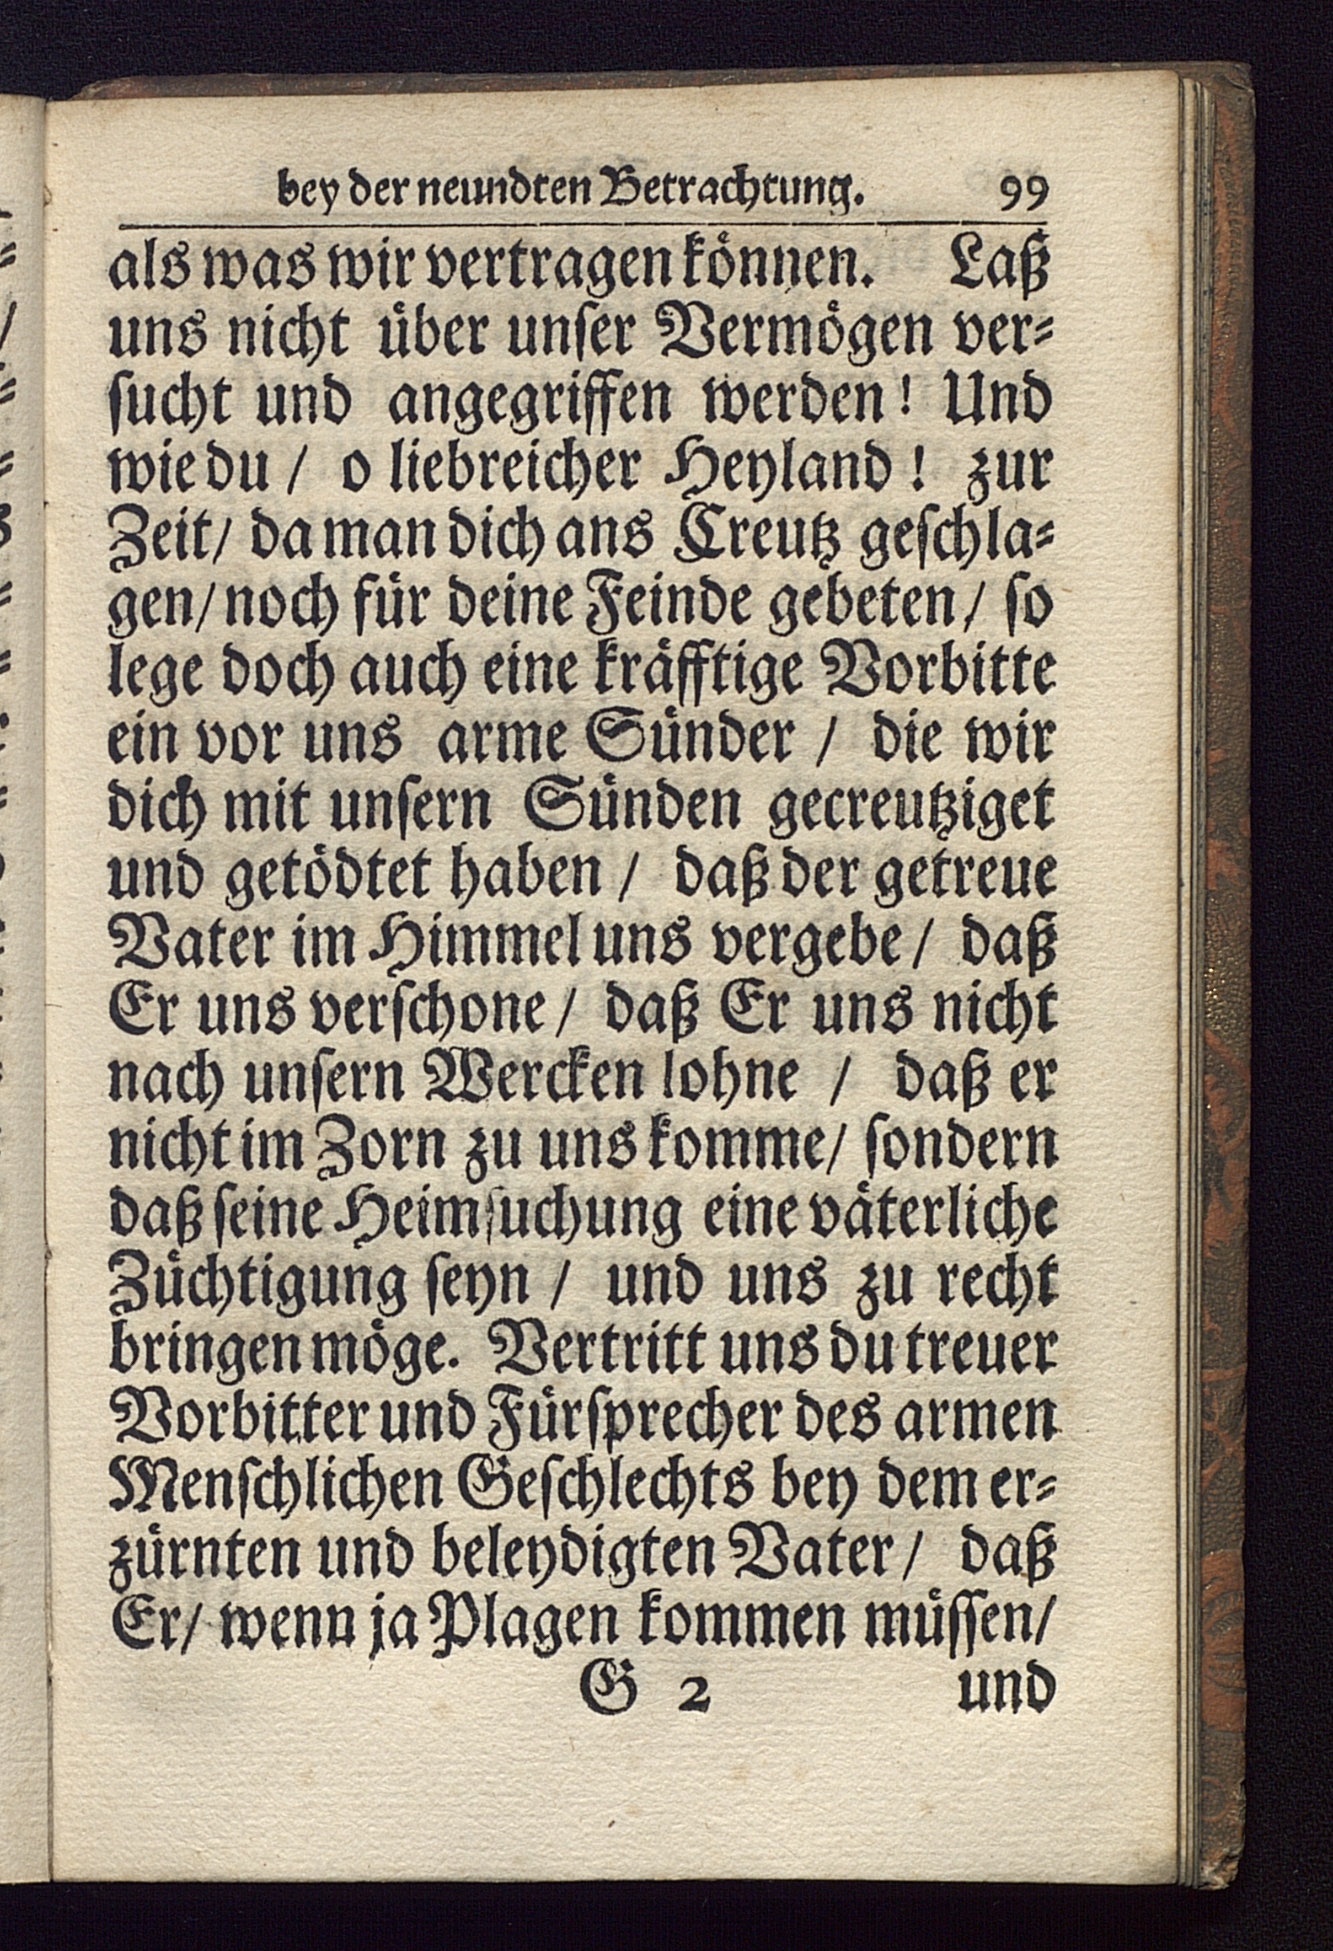 bey der neundten Betrachtung. 99
als was wir vertragen können. Laß
uns nicht über unſer Vermögen ver⸗
ſucht und angegriffen werden! Und
wie du / o liebreicher Heyland! zur
Zeit/ da man dich ans Creutz geſchla⸗
gen/ noch für deine Feinde gebeten/ ſo
lege doch auch eine kräfftige Vorbitte
ein vor uns arme Sünder / die wir
dich mit unſern Sünden gecreutziget
und getödtet haben / daß der getreue
Vater im Himmel uns vergebe/ daß
Er uns verſchone/ daß Er uns nicht
nach unſern Wercken lohne / daß er
nicht im Zorn zu uns komme/ ſondern
daß ſeine Heimſuchung eine väterliche
Züchtigung ſeyn / und uns zu recht
bringen möge. Vertritt uns du treuer
Vorbitter und Fürſprecher des armen
Menſchlichen Geſchlechts bey dem er⸗
zürnten und beleydigten Vater/ daß
Er/ wenn ja Plagen kommen müſſen/
G 2 und